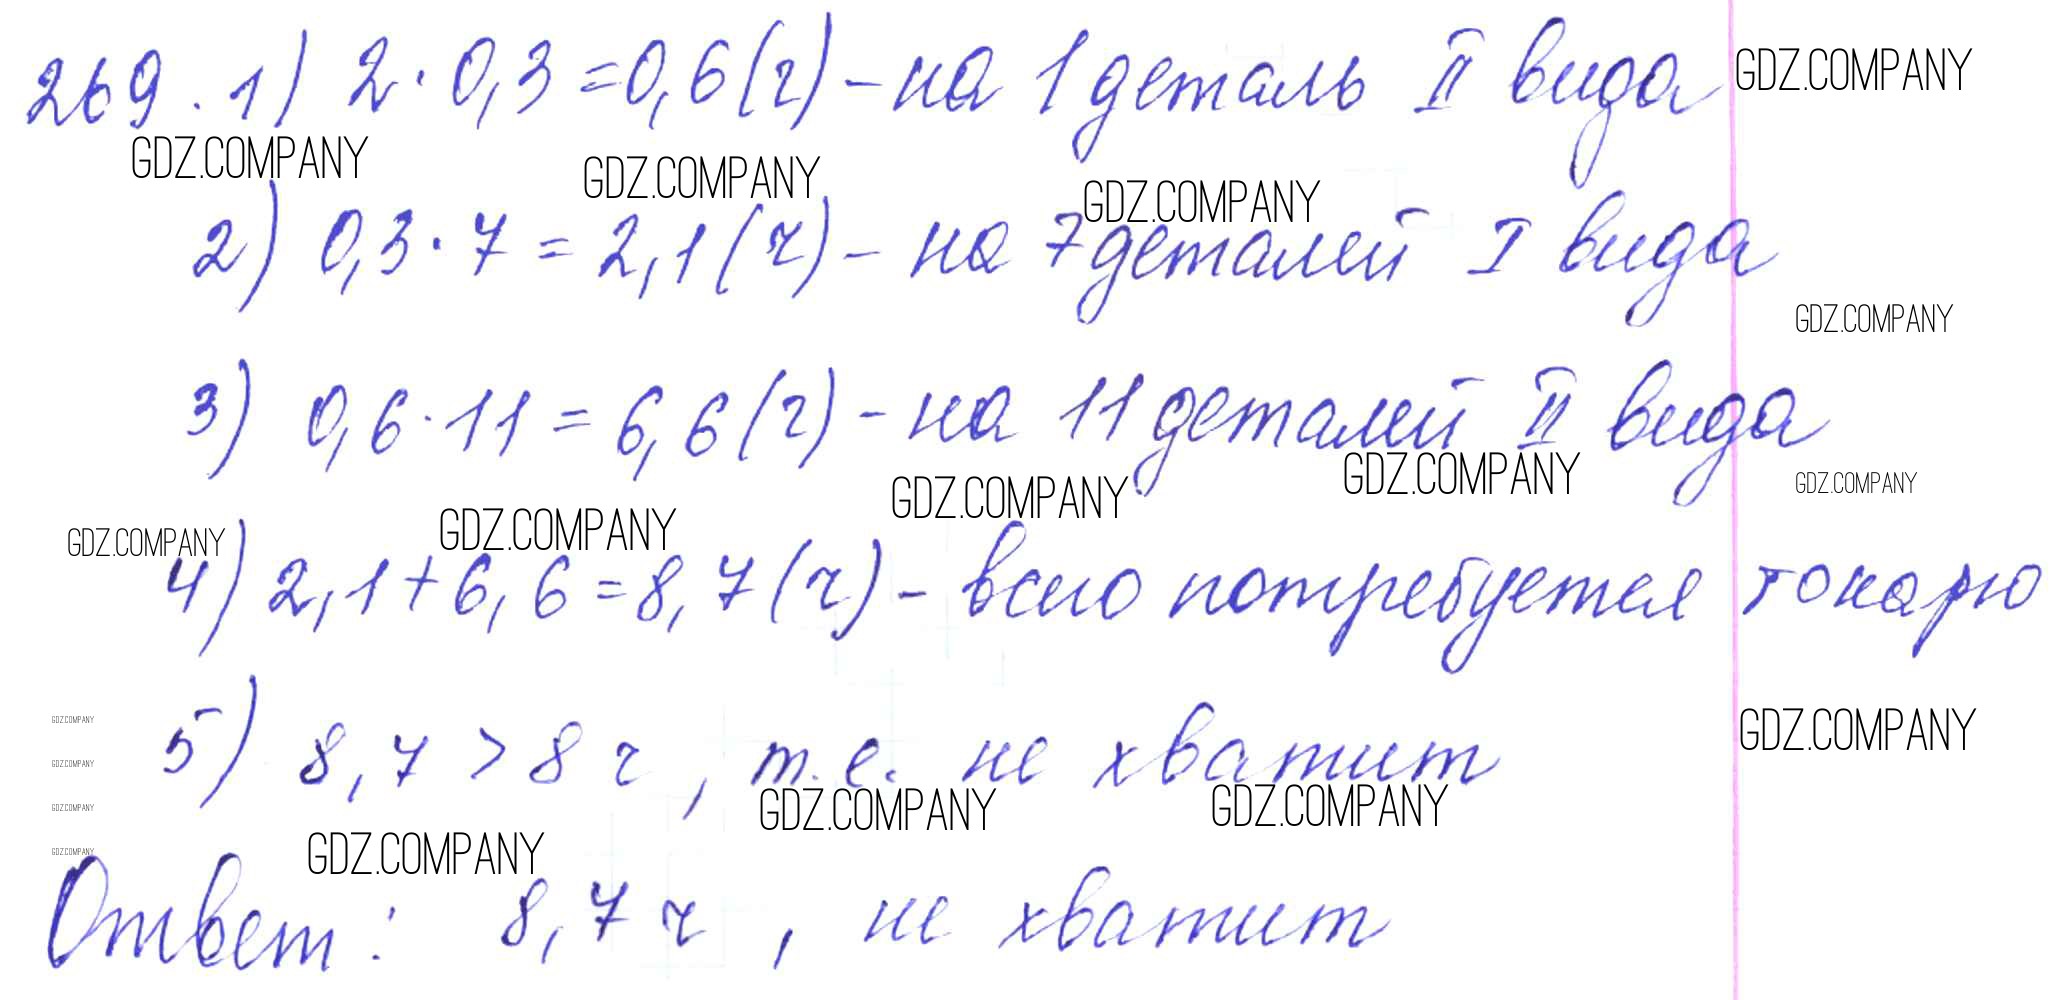 269. 1) 2 · 0,3 = 0,6 (ч) – на 1 деталь II вида GDZ.COMPANY
GDZ.COMPANY GDZ.COMPANY GDZ.COMPANY
2) 0,3 · 7 = 2,1 (ч) – на 7 деталей I вида
GDZ.COMPANY
3) 0,6 · 11 = 6,6 (ч) – на 11 деталей II вида
GDZ.COMPANY GDZ.COMPANY GDZ.COMPANY
GDZ.COMPANY GDZ.COMPANY
4) 2,1 + 6,6 = 8,7 (ч) – всего потребуется токарю
GDZ.COMPANY
5) 8,7 > 8 ч, т.е. не хватит GDZ.COMPANY
GDZ.COMPANY
GDZ.COMPANY GDZ.COMPANY GDZ.COMPANY
GDZ.COMPANY GDZ.COMPANY
Ответ: 8,7 ч, не хватит